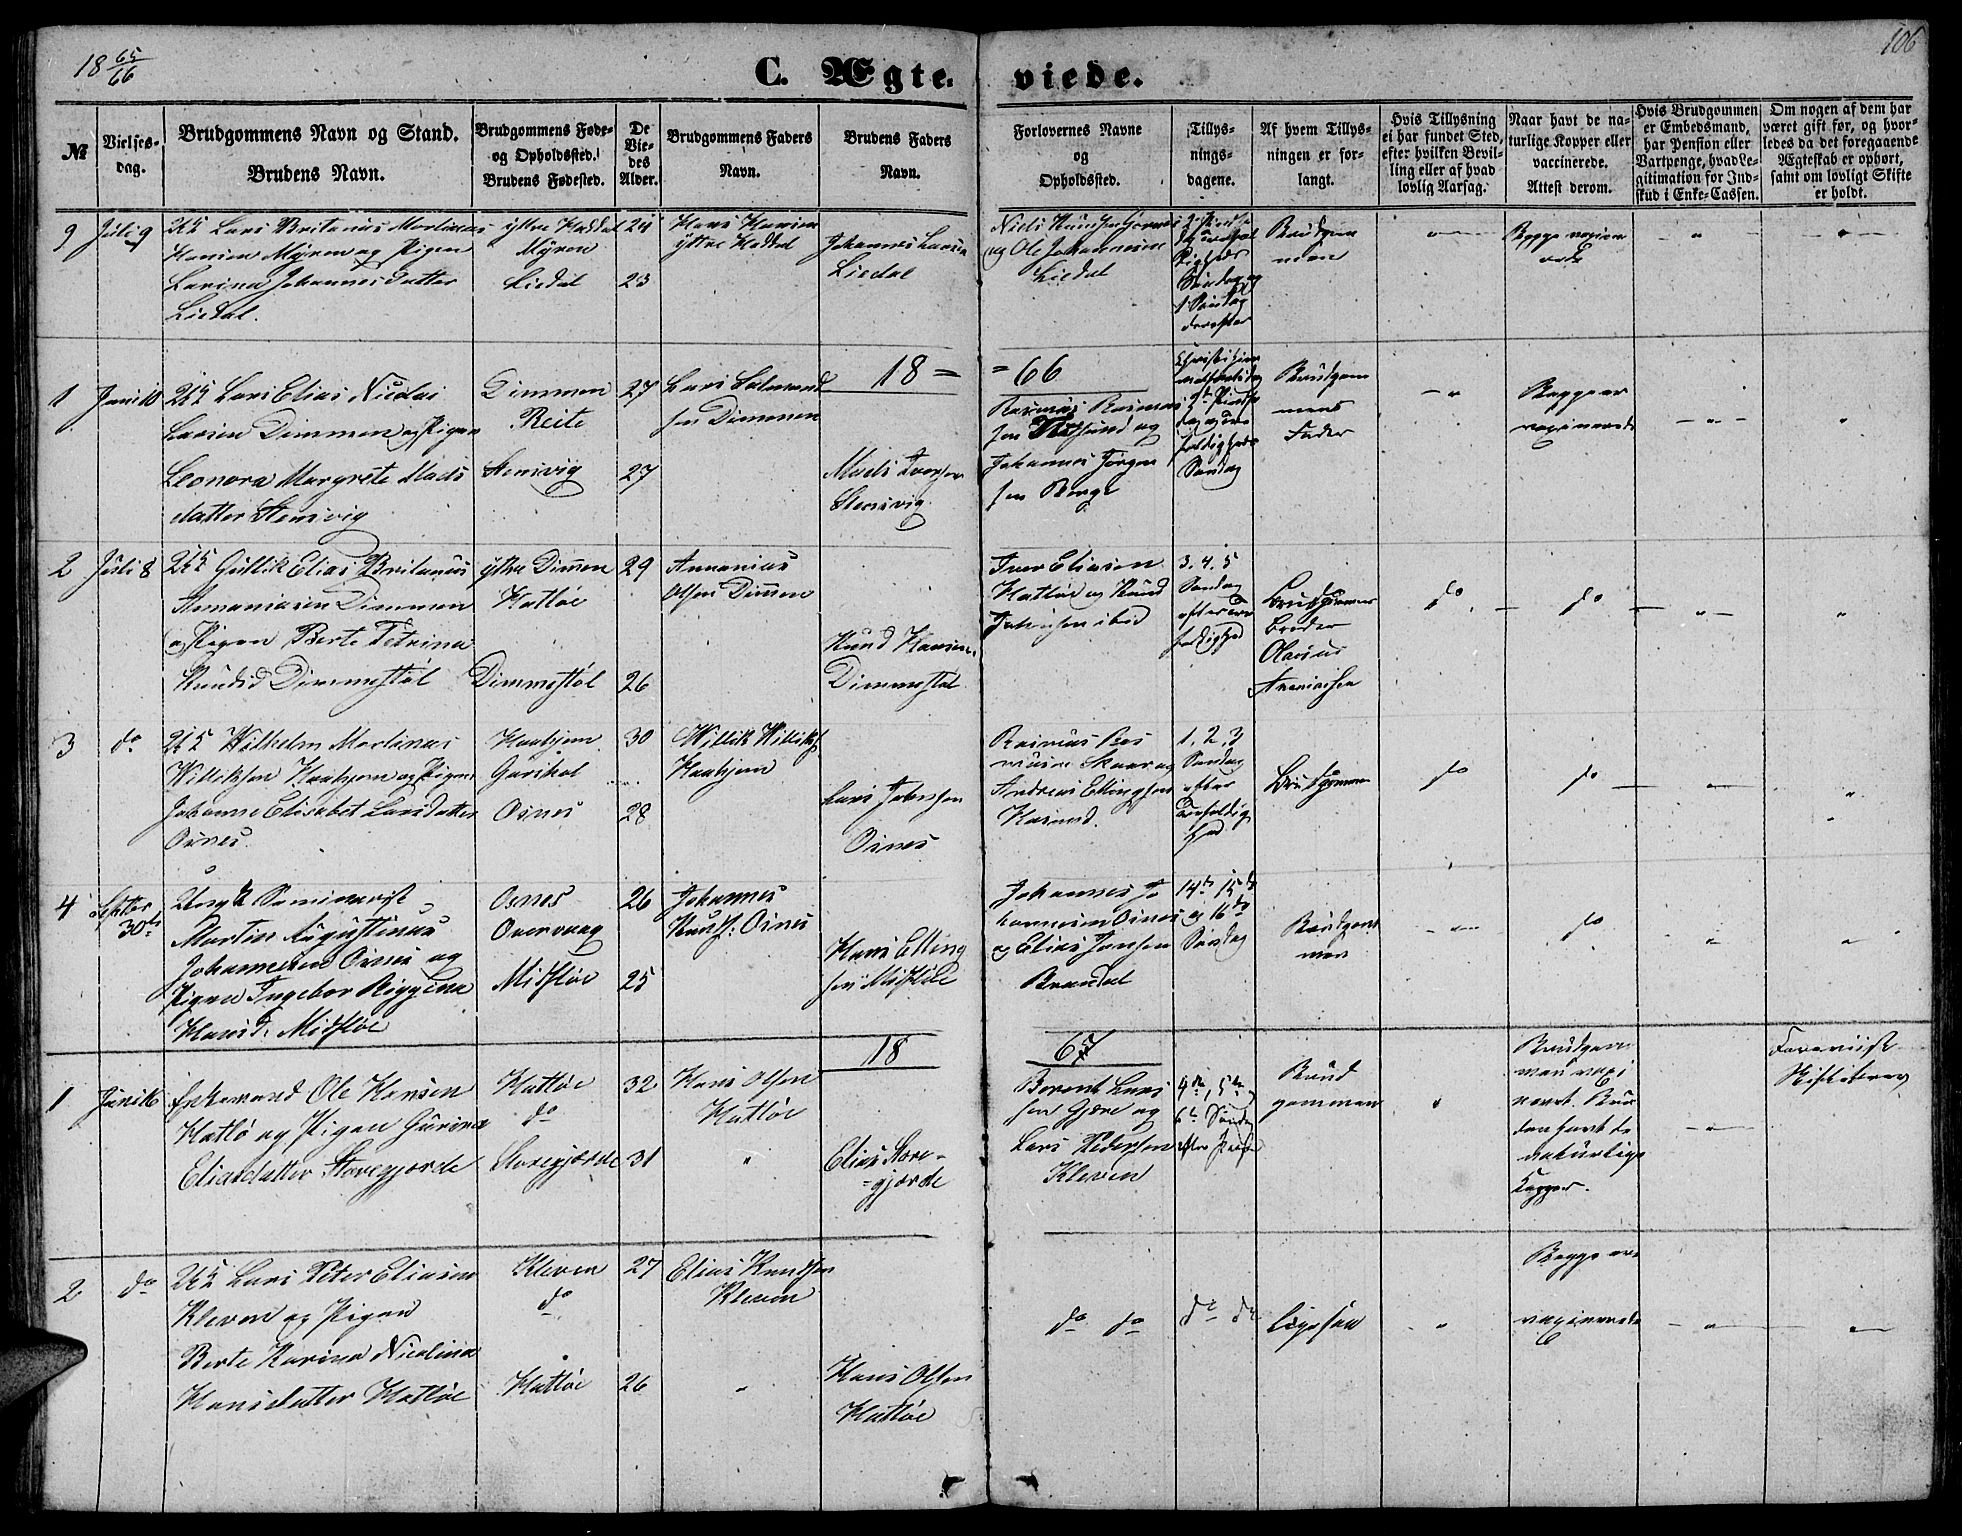 18 65/66
106
C. Ægte-
viede.
№
Vielses-
dag.
Brudgommens Navn og Stand.
Brudens Navn.
Brudgommens Føde-
og Opholdssted.
Brudens Fødested.
De
Vie-
des
Alder.
Brudgommens Faders
Navn.
Brudens Faders
Navn.
Forlovernes Navne
og
Opholdssted.
Tillys-
nings-
dagene.
Af hvem Tillys-
ningen er for-
langt.
Hvis Tillysning
ei har fundet Sted,
efter hvilken Bevil-
ling eller af hvad
lovlig Aarsag.
Naar havt de na-
turlige Kopper eller
vaccinerede.
Attest derom.
Hvis Brudgommen
er Embedsmand,
har Pension eller
Vartpenge, hvad Le-
gitimation for Ind-
skud i Enke-Cassen.
Om nogen af dem har
været gift før, og hvor-
ledes da det foregaaende
Ægteskab er ophørt,
samt om lovligt Skifte
er holdt.
9
Juli 9
Lars Britanus Martinus
Hansen Myren og Pigen
Larine Johannesdatter
Liedal.
ÿttre Haddal
Myren
Liedal
24
23
Hans Hansen
ÿttre Haddal
Johannes Larsen
Liedal
og Ole Johannesen
Liedal
Søndag og
1 Søndag
derefter
Brudgom
men
Begge vaxine
rede
18 =
= 66
1
Juni 10
Lars Elias Nicolai
Larsen Dimmen og Pigen
Leonora Margrete Mads
datter Stensvig
Dimmen
Reite
Stensvig
27
27
Lars Salmond
sen Dimmen
Mads Iversen
Stensvig.
Rasmus Rasmus
sen og
Johannes Jørgen
sen Berge
Søndag
Brudgom
mens
Fader
Begge er
vaxinerede
2
Juli 8
Gullik Elias Britanus
Annaniasen Dimmen
og Pigen Berte Petrina
Knudsd Dimmestøl
ÿttre Dimen
Hatløe
Dimmestøl
29
26
Annanias
Olsen Dimen
Knud Hansen
Dimmestøl
Iver Eliasen
Hatløe og Knud
Johnsen ibid
3. 4. 5
Søndag
efter Tre
foldighed
Brudgommens
Broder
Olaus
Ananiasen
do
do
3
do
Wilhelm Martinus
Williksen Haahjem og Pigen
Johanne Elisabet Larsdatter
Osnes.
Haahjem
Gurskøl
Osnes
30
28
Willik Williks.
Haahjem
Lars Johnsen
Osnes
Rasmus Ras
musen Skaar og
Andreas Ellingsen
Hasund.
1. 2. 3
Søndag
efter
Trefoldig
hed
Brudgommen
do
do
4
Septbr
30te
Ungk. Seminarist
Martin Augustinus
Johannesen Osnes og
Pigen Ingebor Birgine
Hansd. Midtløe
Osnes
Overvaag
Midtløe
26
25
Johannes
Knuds. Osnes
Hans Elling
sen Midtløe
Johannes Jo
hannesen Osnes
og Elias Jansen
Brandal
14de, 15de
og 16de
Søndag
Brudgom
men
do
18
67
1
Juni 16
Enkemand Ole Hansen
Hatlø og Pigen Gurina
Eliasdatter Storegjærde
Hatløe
do
Storegjærde
32
31
Hans Olsen
Hatløe
Elias Store-
-gjærde
Berent Lars
sen Gjære og
Lars Pedersen
Kleven
4de, 5te og
6te Søndag
efter Paaske
Brud
gommen
Brudgom
men vaxi
neret. Bru
den havt de
naturlige
Kopper.
Forevist
Skifebrev
2
do
Lars Peter Eliasen
Kleven og Pigen
Berte Karina Nicolina
Hansdatter Hatløe
Kleven
do
Hatløe
27
26
Elias Knudsen
Kleven
Hans Olsen
Hatløe
do do
do do
Ligesaa
Begge ere
vaxinerede